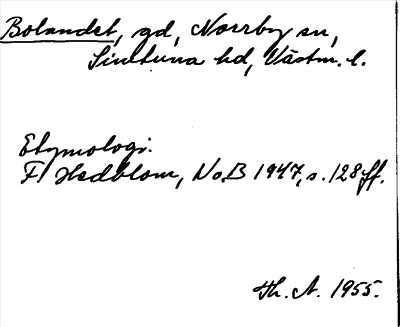 Bolandet, gd, Norrby sn,
Simtuna hd, Västm. l.
Etymologi.
F Hedblom, NoB 1947, s. 128 ff.
Th. A. 1955.